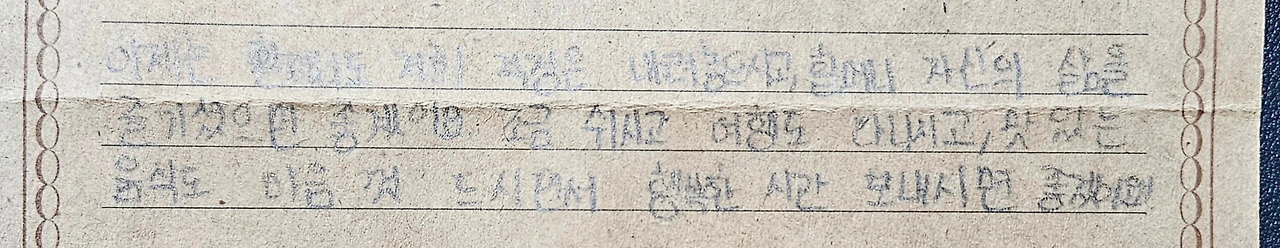 이제는 할머니도 저희 걱정은 내려놓으시고, 할머니 자신의 삶을
즐기셨으면 좋겠어요 조금 쉬시고 여행도 다니시고, 맛있는
음식도 마음 껏 드시면서 행복한 시간 보내시면 좋겠어요